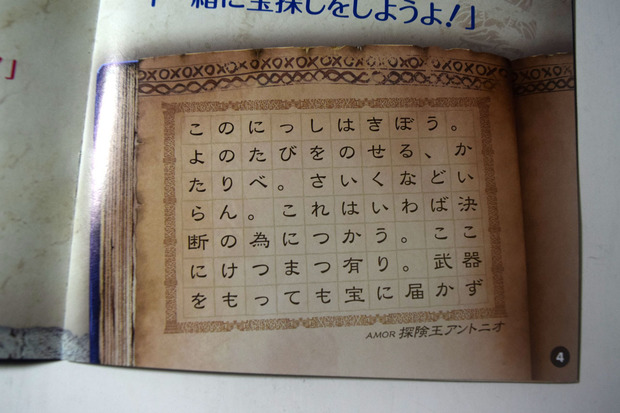 一緒に宝探しをしようよ!」
」
このにっしはきぼう。
よのたびをのせる、か
たりべ。さいくなどい
らん。これはいわば決
断の為につかう。ここ
にけつまつ有り。武器
をもっても宝に届かず
AMOR 探険王アントニオ
4